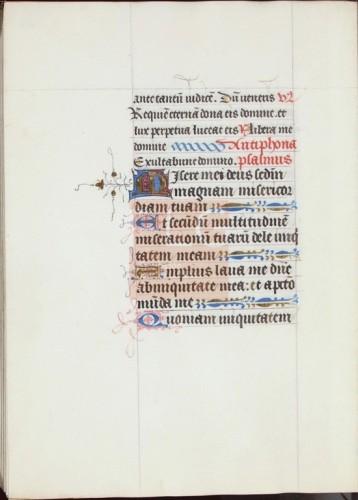 ante tantū iudicē. Dū veneris V2
Requiē eternā dona eis domine. et
lux perpetua luceat eis Libera me
domine Antiphona
Exultabūt domino. psalmus
Misere mei deus sedm
magnam misericor
diam tuam
Et secūdm multitudinē
miserationū tuarū dele iniq
tatem meam
Amplius lava me dñe
ab iniquitate mea: et a pcto
mūda me
Quoniam iniquitatem